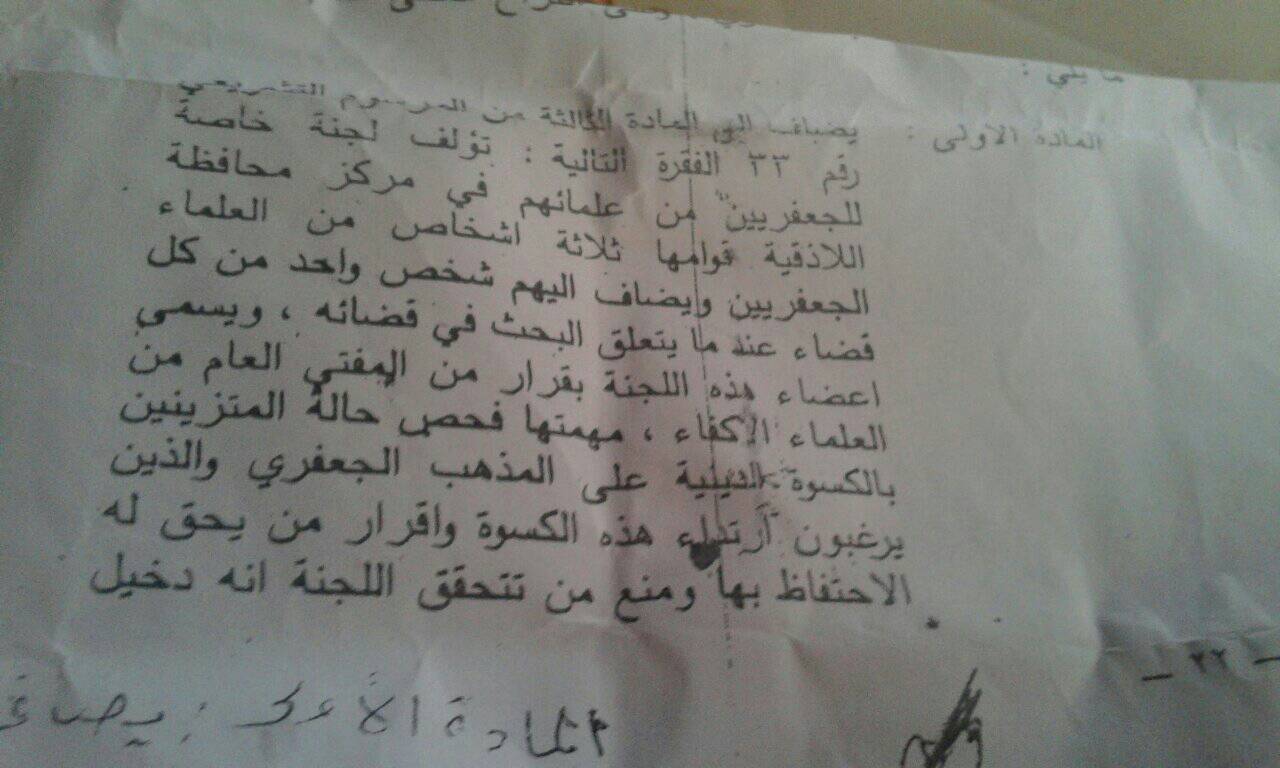 ما يلي :
المادة الاولى : يضاف الى المادة الثالثة من المرسوم التشريعي
رقم ٣٣ الفقرة التالية : تؤلف لجنة خاصة
للجعفريين من علمائهم في مركز محافظة
اللاذقية قوامها ثلاثة اشخاص من العلماء
الجعفريين ويضاف اليهم شخص واحد من كل
قضاء عند ما يتعلق البحث في قضائه ، ويسمى
اعضاء هذه اللجنة بقرار من المفتي العام من
العلماء الاكفاء ، مهمتها فحص حالة المتزينين
بالكسوة الدينية على المذهب الجعفري والذين
يرغبون ارتداء هذه الكسوة واقرار من يحق له
الاحتفاظ بها ومنع من تتحقق اللجنة انه دخيل
– ٢٢ –
المادة الأولى : يضاف